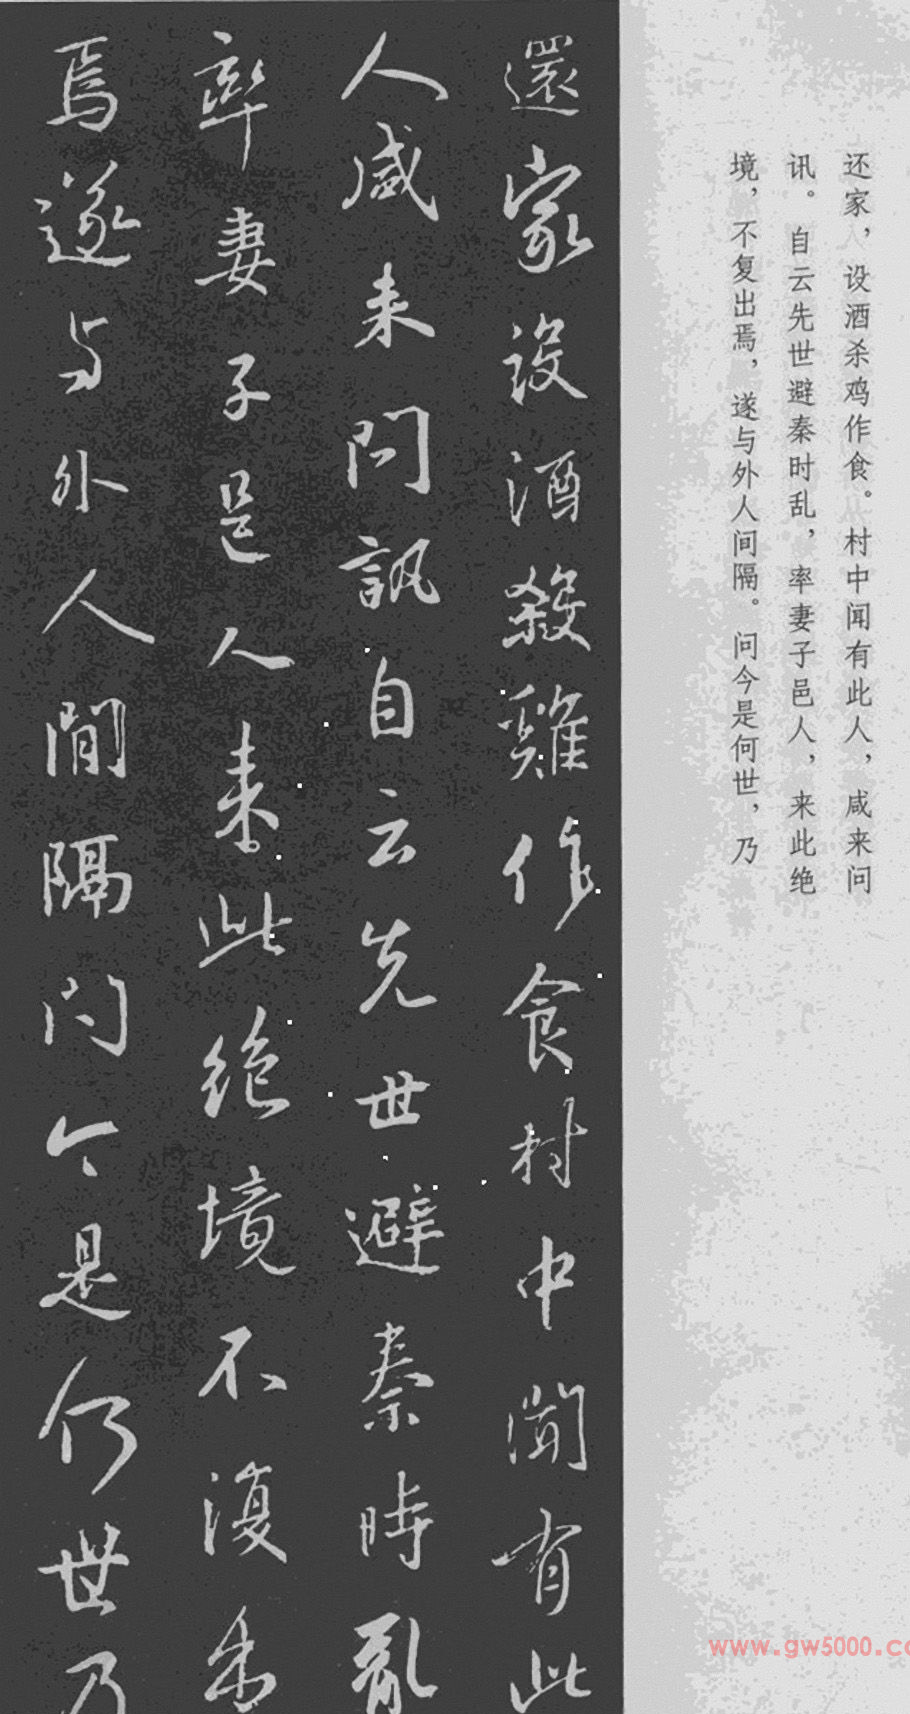 還家設酒殺雞作食村中聞有此
人咸来問訊自云先世避秦時亂
率妻子邑人来此绝境不復出
焉遂与外人間隔問今是何世乃
还家，设酒杀鸡作食。村中闻有此人，咸来问
讯。自云先世避秦时乱，率妻子邑人，来此绝
境，不复出焉，遂与外人间隔。问今是何世，乃
www.gw5000.co